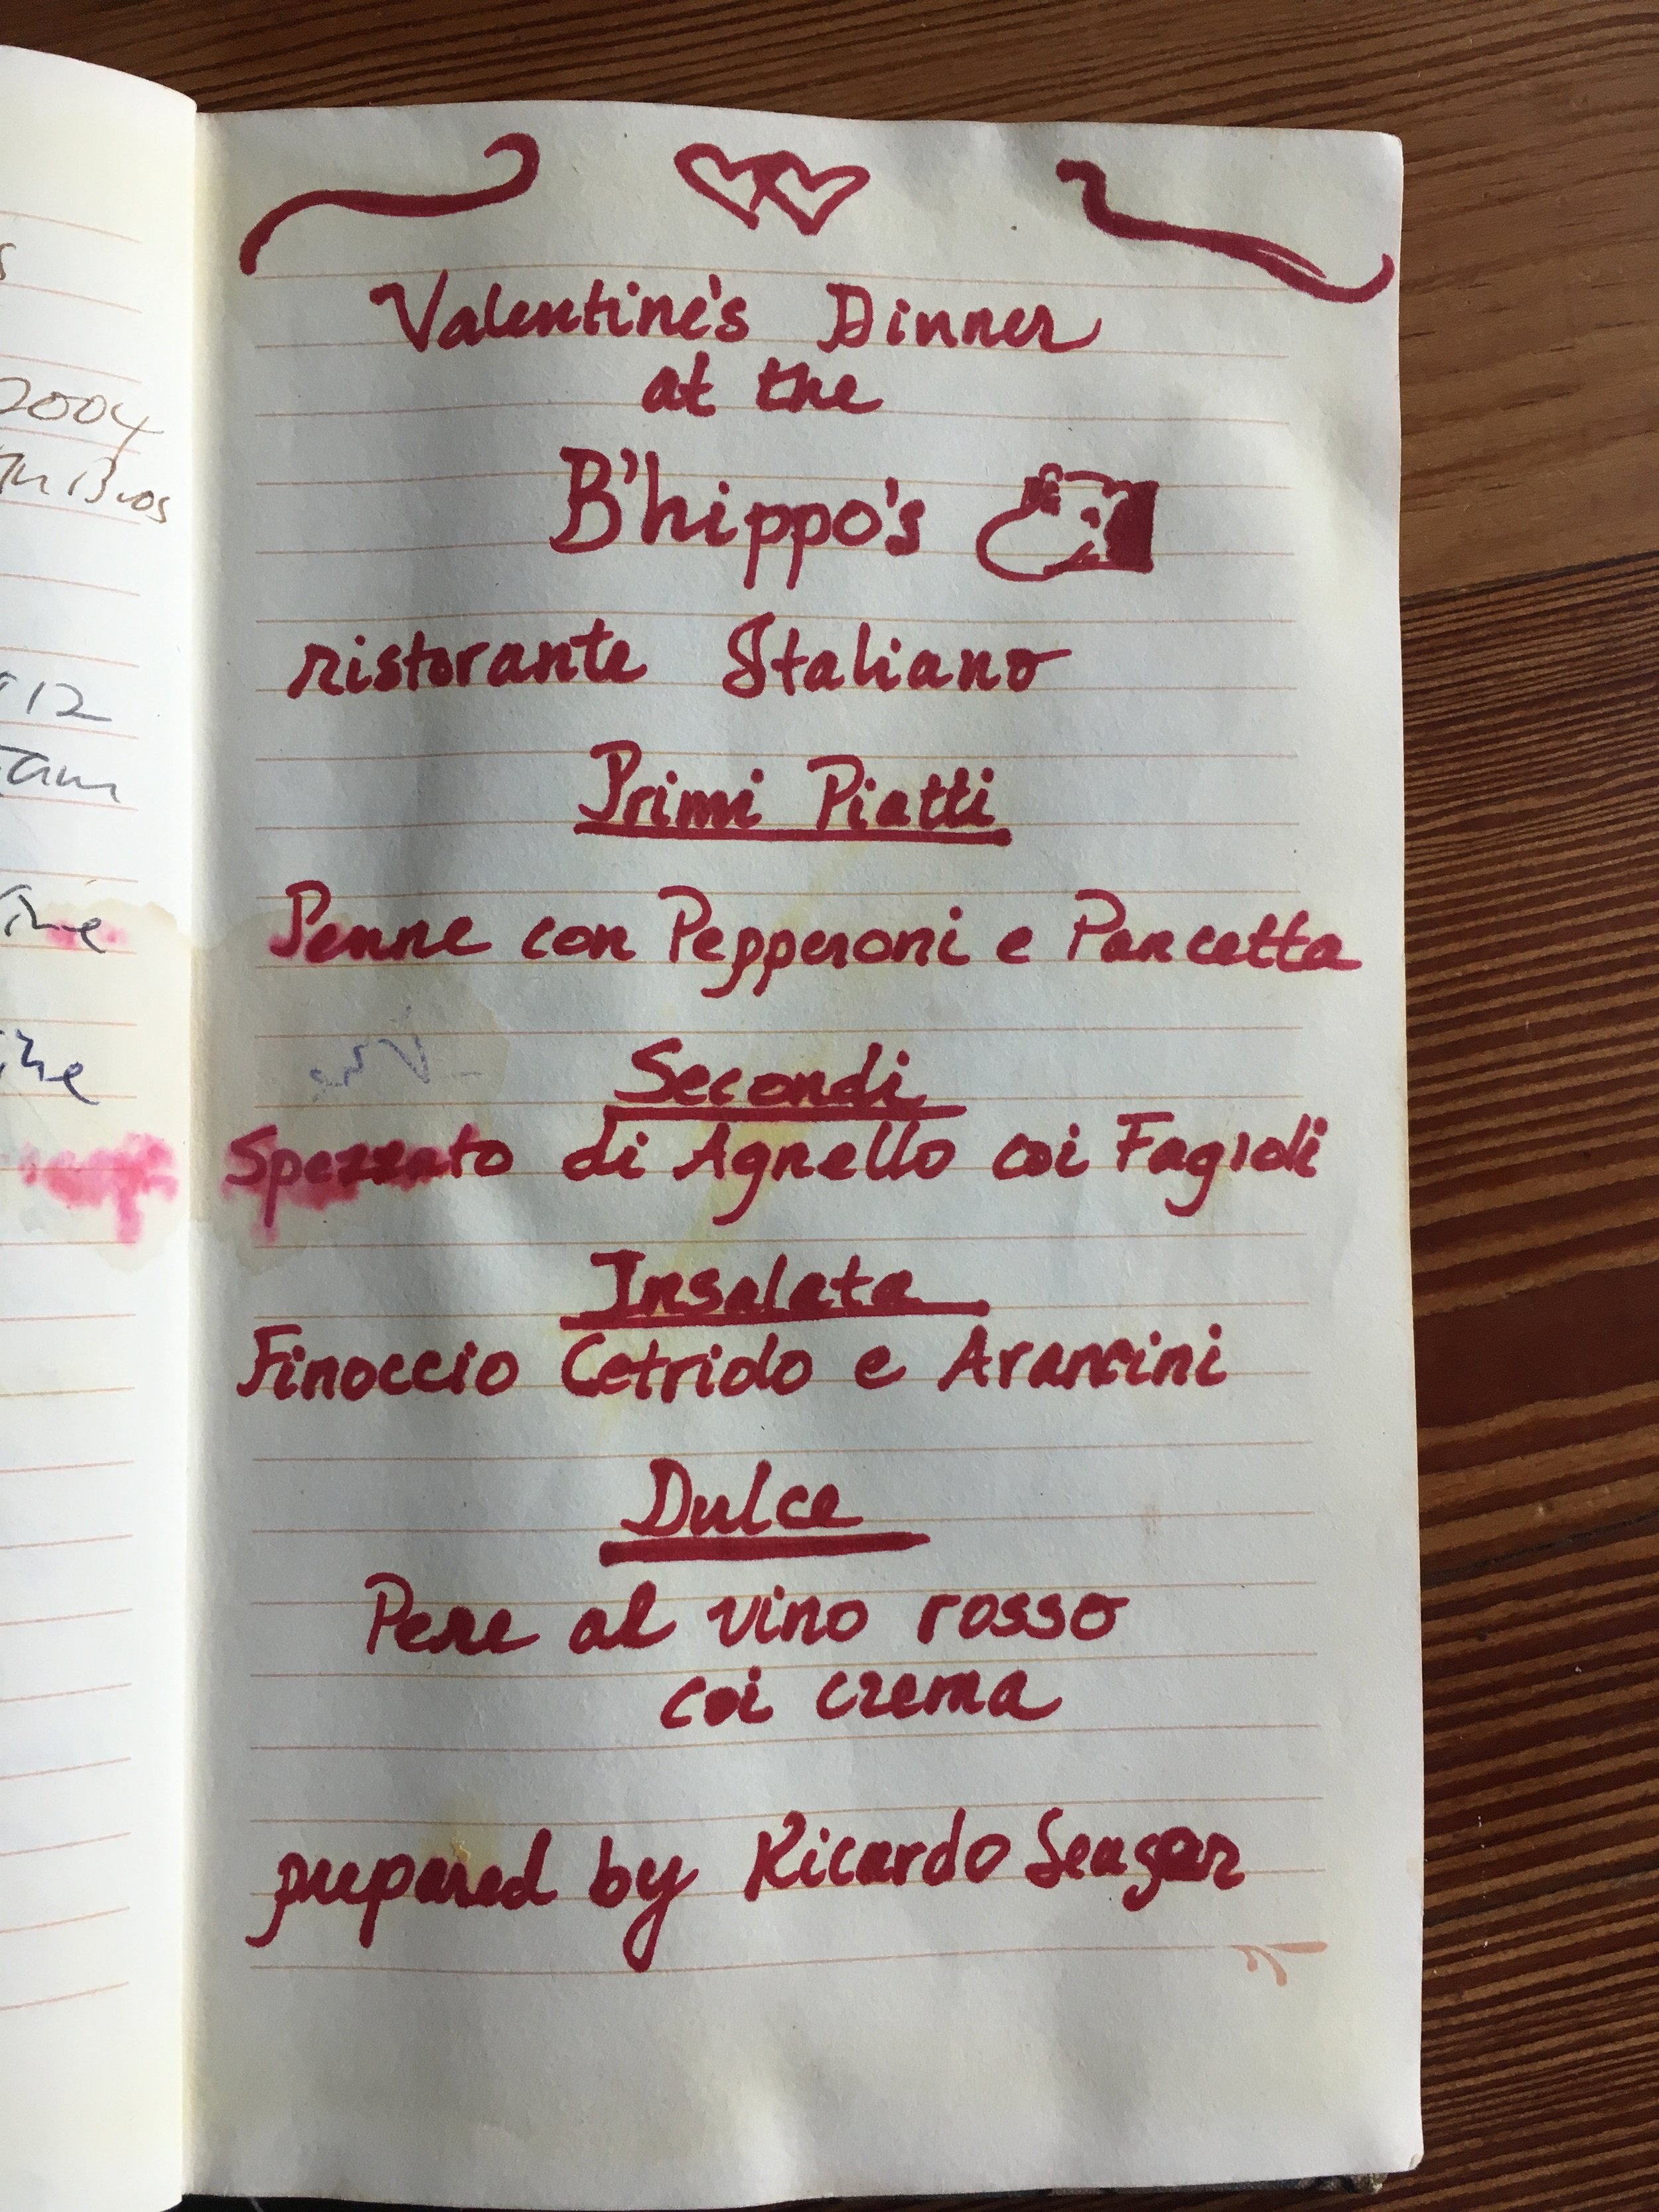 2004
Valentine's Dinner
at the
B'hippo's
ristorante Italiano
Primi Piatti
Penne con Pepperoni e Pancetta
Secondi
Spezzato di Agnello coi Fagioli
Insalata
Finoccio Cetriolo e Arancini
Dulce
Pere al vino rosso
coi crema
prepared by Ricardo Seager